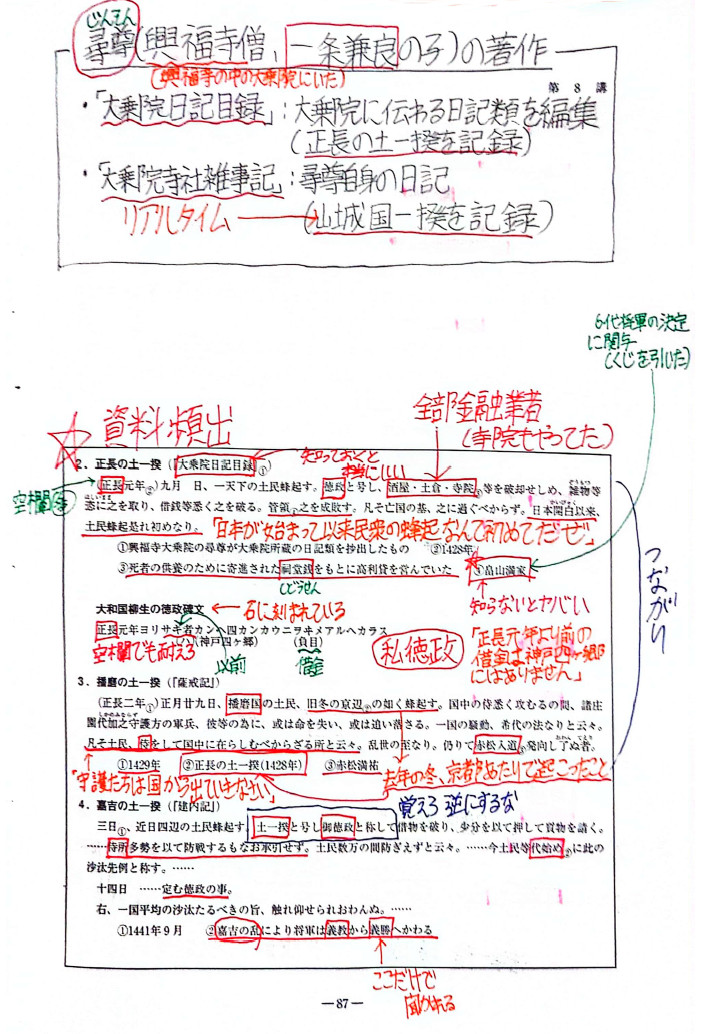 じんそん
尋尊(興福寺僧、一条兼良の子)の著作
(興福寺の中の大乗院にいた)
第8講
・「大乗院日記目録」:大乗院に伝わる日記類を編集
(正長の土一揆を記録)
・「大乗院寺社雑事記」:尋尊自身の日記
リアルタイム
(山城国一揆を記録)
6代将軍の決定
に関与
(くじを引いた)
資料頻出
全部金融業者
(寺院もやってた)
2.正長の土一揆(『大乗院日記目録』①)
知っておくと
本当にいい
(正長元年②)九月 日、一天下の土民蜂起す。徳政と号し、酒屋・土倉・寺院③等を破却せしめ、雑物等
恣に之を取り、借銭等悉く之を破る。管領④之を成敗す。凡そ亡国の基、之に過ぐべからず。日本開白以来、
土民蜂起是れ初めなり。
「日本が始まって以来民衆の蜂起なんて初めてだぜ」
①興福寺大乗院の尋尊が大乗院所蔵の日記類を抄出したもの ②1428年
③死者の供養のために寄進された祠堂銭をもとに高利貸を営んでいた ④畠山満家
しどうせん
知らないとヤバい
つながり
大和国柳生の徳政碑文
石に刻まれている
正長元年ヨリサキ者カンヘ四カンカウニヲヰメアルヘカラス
(ハ)(神戸四ヶ郷)(負目)
空欄でも耐えろ
以前
借金
私徳政
「正長元年より前の
借金は神戸四ヶ郷
にはありません」
3.播磨の土一揆(『薩戒記』)
(正長二年①)正月廿九日、播磨国の土民、旧冬の京辺②の如く蜂起す。国中の侍悉く攻むるの間、諸庄
園代加之守護方の軍兵、彼等の為に、或は命を失い、或は追い落さる。一国の騒動、希代の法なりと云々。
凡そ土民、侍をして国中に在らしむべからざる所と云々。乱世の至なり。仍りて赤松入道③発向し了ぬ者。
①1429年 ②正長の土一揆(1428年) ③赤松満祐
「守護たちは国から出ていきなさい」
去年の冬、京都あたりで起こったこと
4.嘉吉の土一揆(『建内記』)
覚えろ 逆にするな
三日①、近日四辺の土民蜂起す。土一揆と号し御徳政と称して借物を破り、少分を以て押して質物を請く。
……侍所多勢を以て防戦するもなお承引せず。土民数万の間防ぎえずと云々。……今土民等代始め②に此の
沙汰先例と称す。……
十四日 ……定む徳政の事。
右、一国平均の沙汰たるべきの旨、触れ仰せられおわんぬ。……
①1441年9月 ②嘉吉の乱により将軍は義教から義勝へかわる
ここだけで
聞かれる
―87―